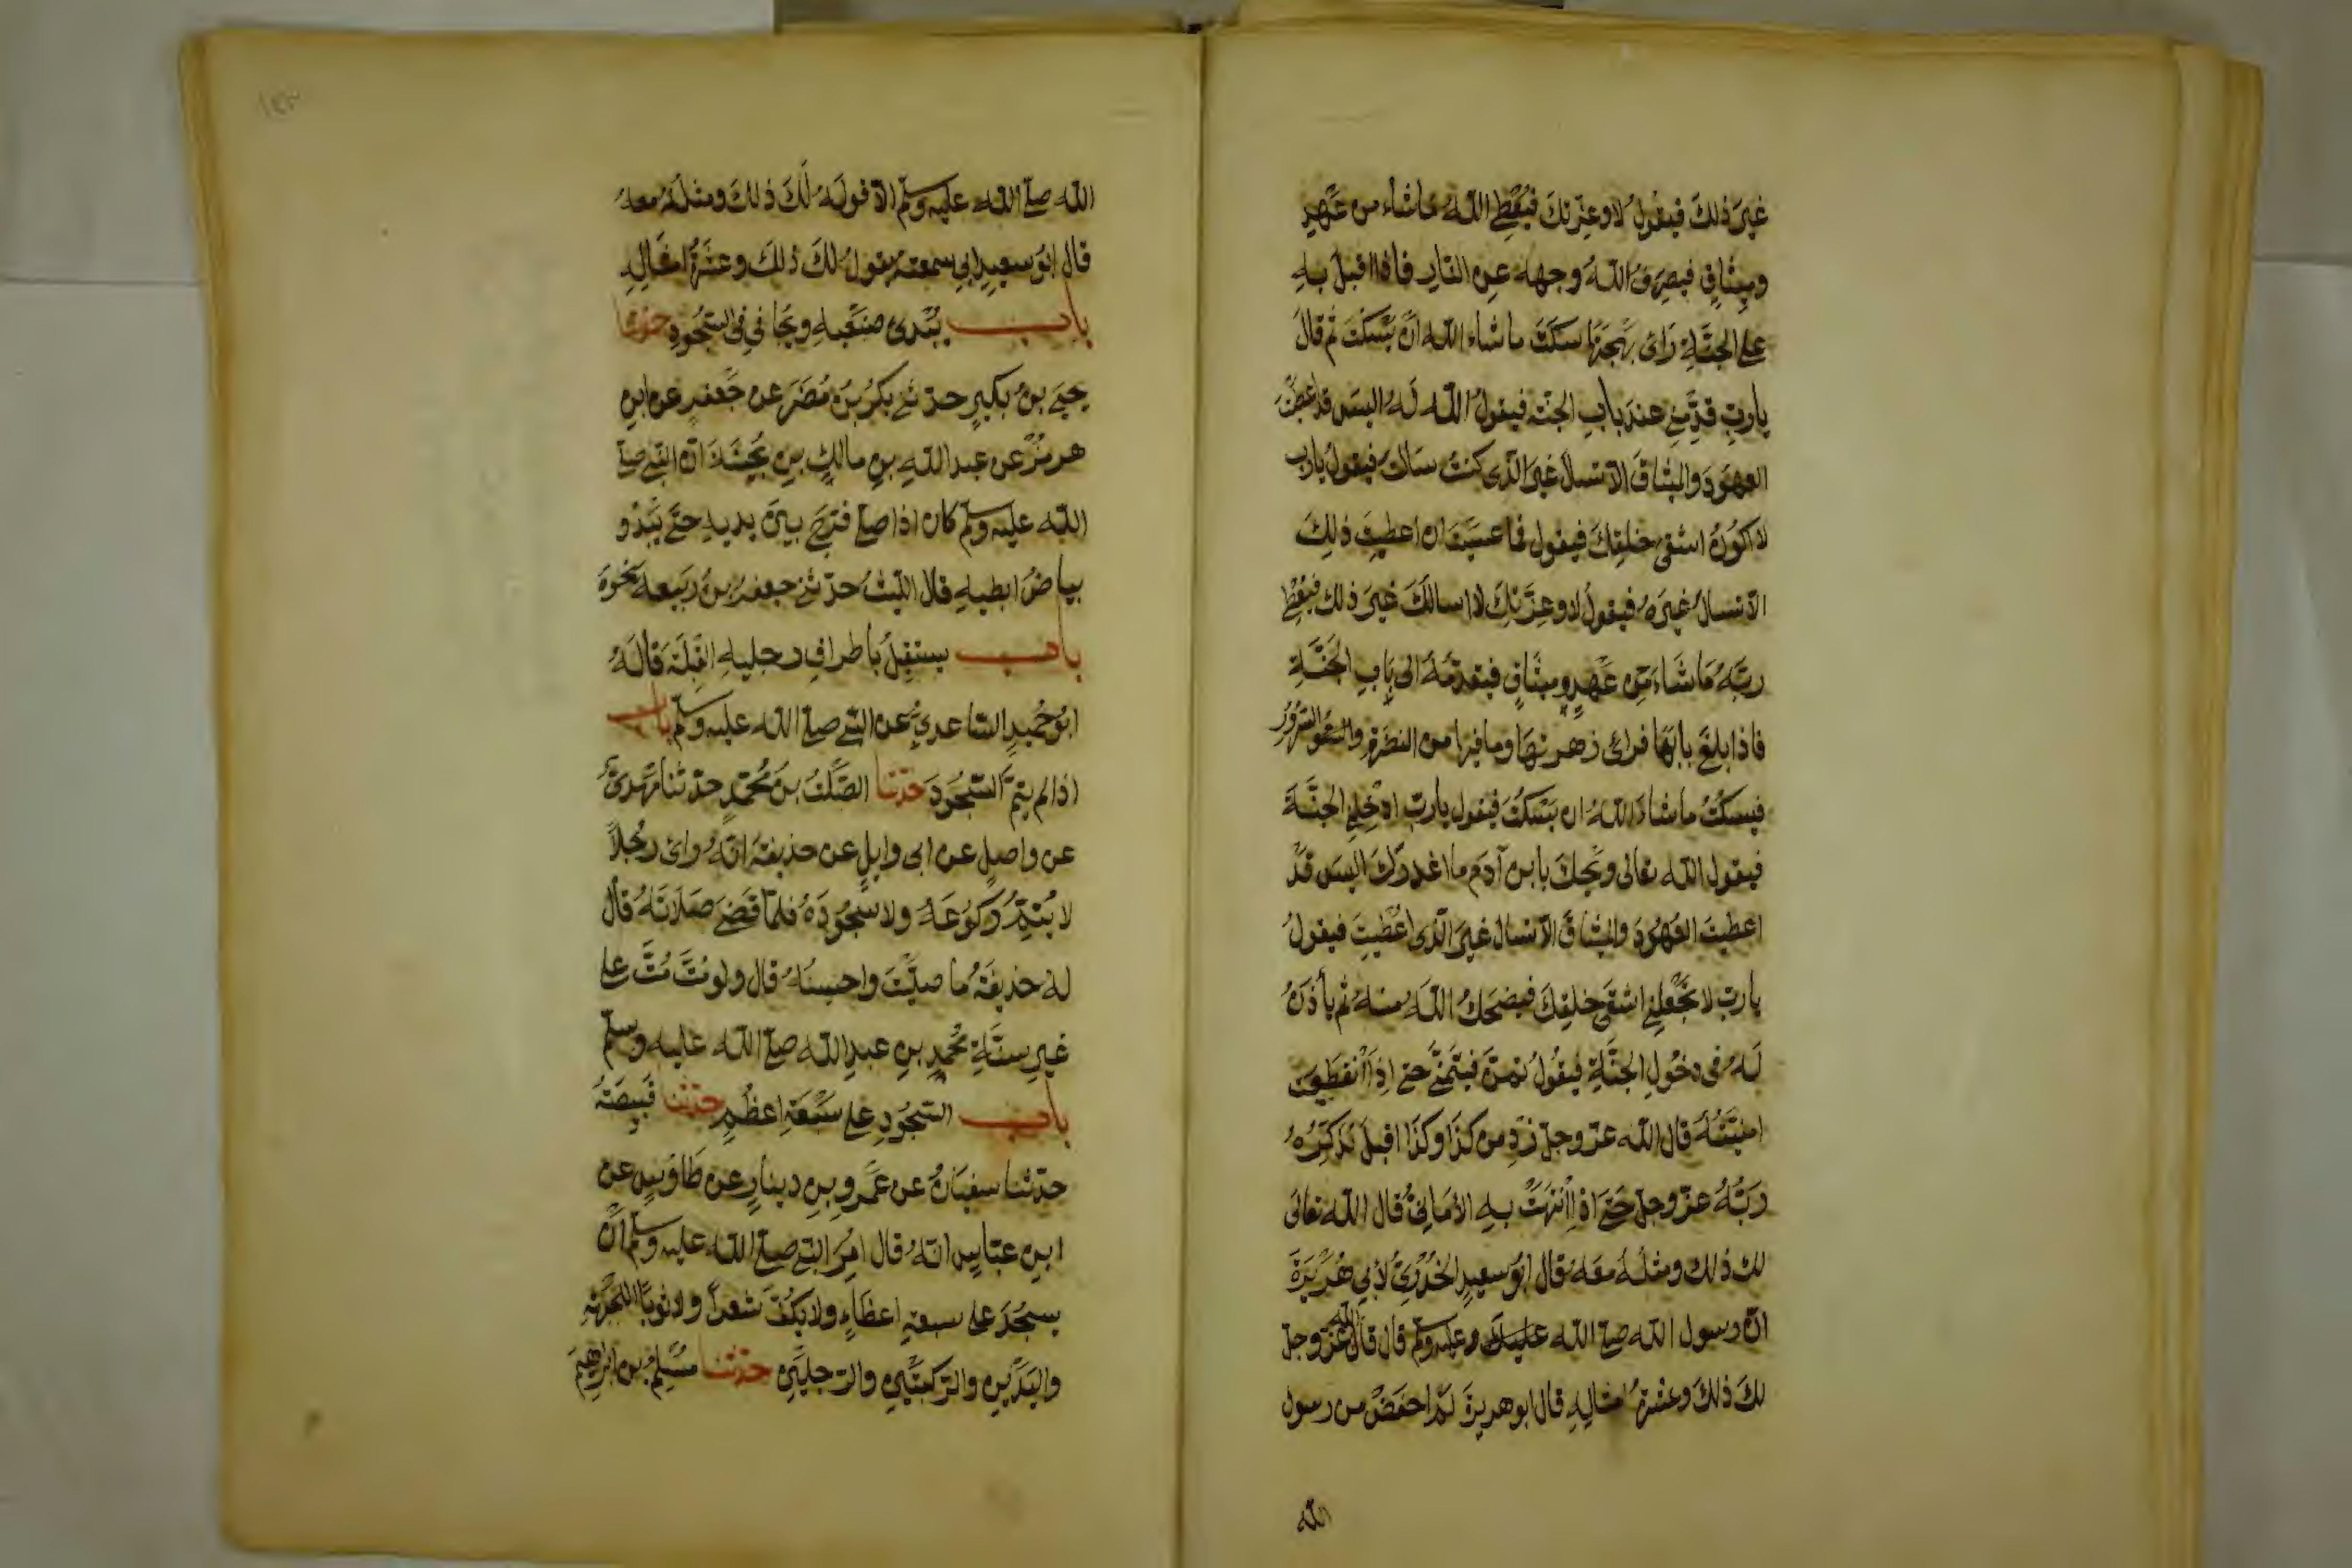 غيرَ ذلك فيقولُ لا وعزّتك فيُعْطِي اللّهَ ما شاء من عَهْدٍ
وميثاقٍ فيصرفُ اللّهُ وجهه عن النّارِ فاذا اقبلَ به
على الجنّةِ رأى بَهْجَتَها سكتَ ما شاء اللّه انْ يَسْكتَ ثم قالَ
يا ربّ قدّمني عند بابِ الجنّة فيقولُ اللّه لهُ اليس قد اعطيتَ
العهودَ والميثاقَ الّا تسالَ غيرَ الّذي كنتَ سالتَ فيقولُ يا ربّ
لا اكونُ اشقى خلقِكَ فيقول فما عسيتَ ان اعطيتَ ذلك
الّا تسالَ غيرَهُ فيقولُ لا وعزّتك لا اسالك غيرَ ذلك فيُعْطِي
ربَّهُ ما شاءَ من عَهْدٍ وميثاقٍ فيقدّمهُ الى بابِ الجنّةِ
فاذا بلغَ بابَها فرأى زهرتها وما فيها من النضرةِ والسّرورِ
فيسكتُ ما شاءَ اللّهُ ان يَسْكُتَ فيقول يا ربّ ادْخِلْني الجنّةَ
فيقول اللّه تعالى ويْحكَ يا ابن آدم ما اغدرَك اليس قدْ
اعطيتَ العُهُودَ والميثاقَ الّا تسال غيرَ الّذي اُعْطيتَ فيقولُ
يا ربّ لا تَجْعَلْني اشقى خلقِكَ فيضحكُ اللّهُ منهُ ثم يأذَنُ
لهُ في دخولِ الجنّةِ فيقولُ تمنَّ فيتمنّى حتى اذا انْقطعت
امنيّتُهُ قال اللّه عزّ وجلّ زدْ من كذا وكذا اقبلَ يُذكّرُهُ
ربُّهُ عزّ وجلّ حتى اذا انتهتْ به الأمانيُّ قال اللّه تعالى
لك ذلك ومثلُهُ معَهُ قال ابُو سعيدٍ الخُدْريُّ لأبي هُرَيْرَةَ
انّ رسول اللّه صلى اللّه عليه وسلم قال قال اللّه عزّ وجلّ
لكَ ذلكَ وعشرةُ امثالِهِ قال ابو هريرةَ لمْ احفضْ من رسول
اللّه
اللّه صلى اللّه عليه وسلم الّا قولَهُ لَكَ ذلك ومثلُهُ معهُ
قال ابُو سعيدٍ اني سمعتهُ يقولُ لكَ ذلك وعشرةُ امثالِهِ
باب يُبْدي ضبْعَيهِ ويُجافي في السّجُودِ حدثنا
يحيى بنُ بكيرٍ حدثني بكرُ بنُ مُضَرَ عن جَعْفرٍ عن ابنِ
هرمزَ عن عبد اللّهِ بنِ مالكٍ بنِ بُحَيْنَةَ انّ النبي صلى
اللّه عليه وسلم كان اذا صلى فرّجَ بينَ يديه حتى يَبْدُو
بياضُ ابطيهِ قال الليثُ حدثني جعفرُ بنُ ربيعة نحْوَهُ
باب يستقبلُ بأطرافِ رجليهِ القبلةَ قالهُ
ابُو حُميدٍ السّاعديُّ عن النبي صلى اللّه عليه وسلم باب
اذا لم يتمَّ السّجُودَ حدثنا الصّلتُ بنُ مُحمّدٍ حدثنا مَهْديٌّ
عن واصلٍ عن ابي وايلٍ عن حذيفةَ انّهُ رأى رجُلاً
لا يُتمُّ ركوعَهُ ولا سجُودَهُ فلمّا قضى صلاتَهُ قال
لهُ حذيفَةُ ما صلّيْتَ واحسبُهُ قال ولو مُتَّ مُتَّ على
غيرِ سنّةِ مُحمّدِ بنِ عبدِ اللّه صلى اللّه عليه وسلم
باب السّجُودِ على سَبْعَةِ اعظُمٍ حدثنا قَبِيصَةُ
حدثنا سفيَانُ عن عَمْرِو بنِ دينارٍ عن طاوُسٍ عن
ابنِ عبّاسٍ انّهُ قال اُمِرَ النبي صلى اللّه عليه وسلم انْ
يسجُدَ على سبعةِ اعظاءٍ ولا يكُفَّ شعراً ولا ثوبًا الجبْهةِ
واليَدَيْنِ والرّكبتَيْنِ والرّجليْنِ حدثنا مُسْلمُ بن ابراهيمَ